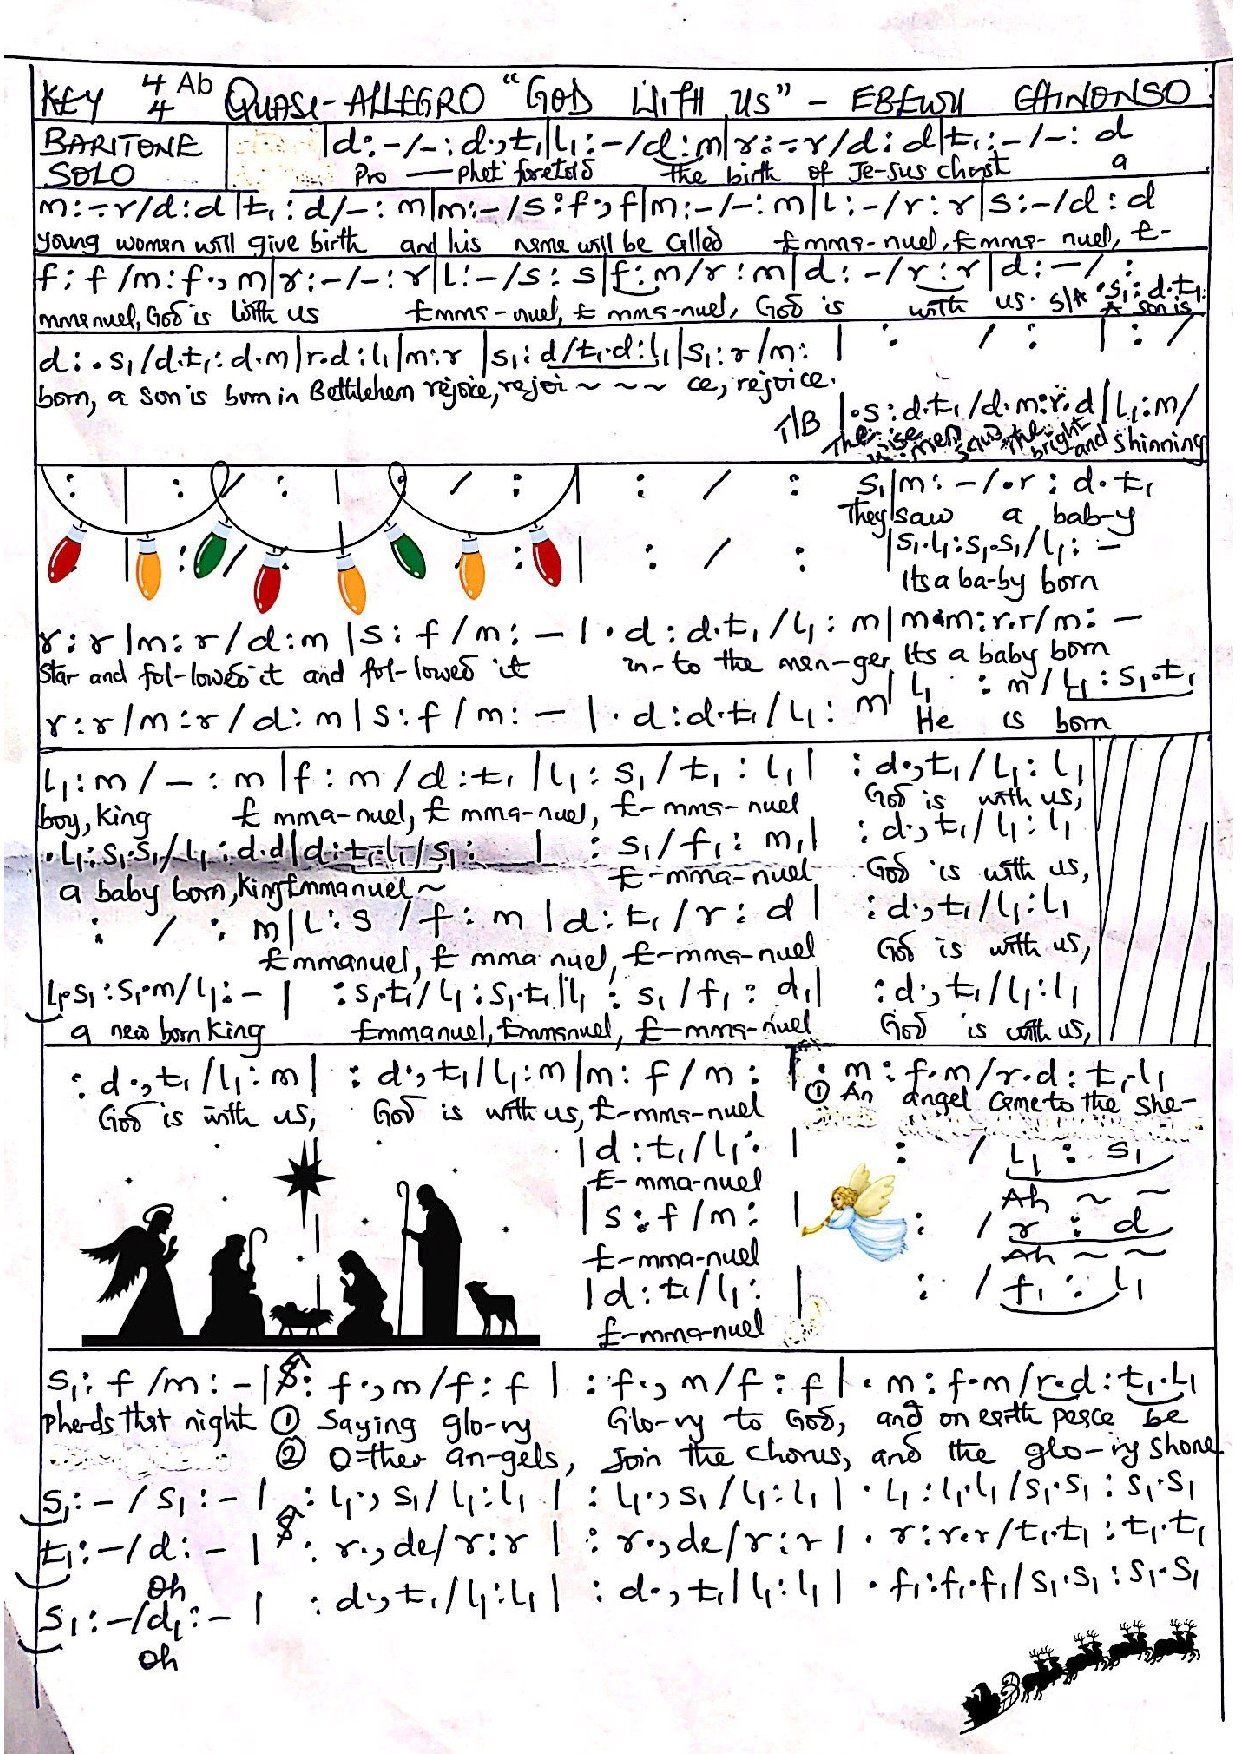 KEY 4/4 Ab QUASI-ALLEGRO "GOD WITH US" - EBEWU CHINONSO
BARITONE SOLO
d:-/-:d.,t₁|l₁:-/d:m|r:-.r/d:d|t₁:-/-:d
Pro — phet foretold the birth of Je-sus christ a
m:-.r/d:d|t₁:d/-:m|m:-/s:f.,f|m:-/-:m|L:-/r:r|s:-/d:d
young women will give birth and his name will be Called Emma-nuel, Emma-nuel, E-
f:f/m:f.,m|r:-/-:r|L:-/s:s|f:m/r:m|d:-/r:r|d:-/ :
mmanuel, God is with us Emma-nuel, Emma-nuel, God is with us. S/A .s₁:d.t₁:
A son is
d:.s₁/d.t₁:d.m|r.d:l₁|m:r|s₁:d/t₁.d:l₁|s₁:r/m: | : / : | : /
born, a son is born in Bethlehem rejoice, rejoi~~~ce, rejoice.
T/B |.s:d.t₁/d.m:r.d|L₁:m/
The wise men saw the bright and shinning
: | : / : | : / : | : / : s₁|m:-/.r:d.t₁
They saw a bab-y
| : / : | : / : |s₁.l₁:s₁.s₁/l₁:-
Its a ba-by born
r:r|m:r/d:m|s:f/m:-|.d:d.t₁/l₁:m|m.m:r.r/m:-
Star and fol-lowed it and fol-lowed it in-to the man-ger Its a baby born
r:r/m:r/d:m|s:f/m:-|.d:d.t₁/l₁:m|L₁:m/L₁:s₁.t₁
He is born
L₁:m/-:m|f:m/d:t₁|l₁:s₁/t₁:l₁| :d.,t₁/l₁:l₁
boy, king Emma-nuel, Emma-nuel, E-mma-nuel God is with us,
.L₁:s₁.s₁/l₁:d.d|d:t₁.l₁/s₁: | :s₁/f₁:m₁| :d.,t₁/l₁:l₁
a baby born, king Emmanuel~ E-mma-nuel God is with us,
: / :m|L:s/f:m|d:t₁/r:d| :d.,t₁/l₁:l₁
Emmanuel, Emma nuel, E-mma-nuel God is with us,
L₁.s₁:s₁.m/l₁:-| :s₁.t₁/l₁:s₁.t₁|l₁:s₁/f₁:d₁| :d.,t₁/l₁:l₁
a new born king Emmanuel, Emmanuel, E-mma-nuel God is with us,
:d.,t₁/l₁:m| :d.,t₁/l₁:m|m:f/m: | :m:f.m/r.d:t₁.l₁
God is with us, God is with us, E-mma-nuel ① An angel came to the she-
|d:t₁/l₁: | : /L₁:s₁
E-mma-nuel Ah ~ ~
|s:f/m: | : /r:d
E-mma-nuel Ah ~ ~
|d:t₁/l₁: | : /f₁:l₁
E-mma-nuel
s₁:f/m:-|:f.,m/f:f| :f.,m/f:f|.m:f.m/r.d:t₁.l₁
pherds that night ① Saying glo-ry Glo-ry to God, and on earth peace be
② O-ther an-gels, Join the Chorus, and the glo-ry shone
s₁:-/s₁:-| :l₁.,s₁/l₁:l₁| :l₁.,s₁/l₁:l₁|.l₁:l₁.l₁/s₁.s₁:s₁.s₁
t₁:-/d:-| :r.,de/r:r| :r.,de/r:r|.r:r.r/t₁.t₁:t₁.t₁
Oh
s₁:-/d₁:-| :d.,t₁/l₁:l₁| :d.,t₁|l₁:l₁|.f₁:f₁.f₁/s₁.s₁:s₁.s₁
Oh